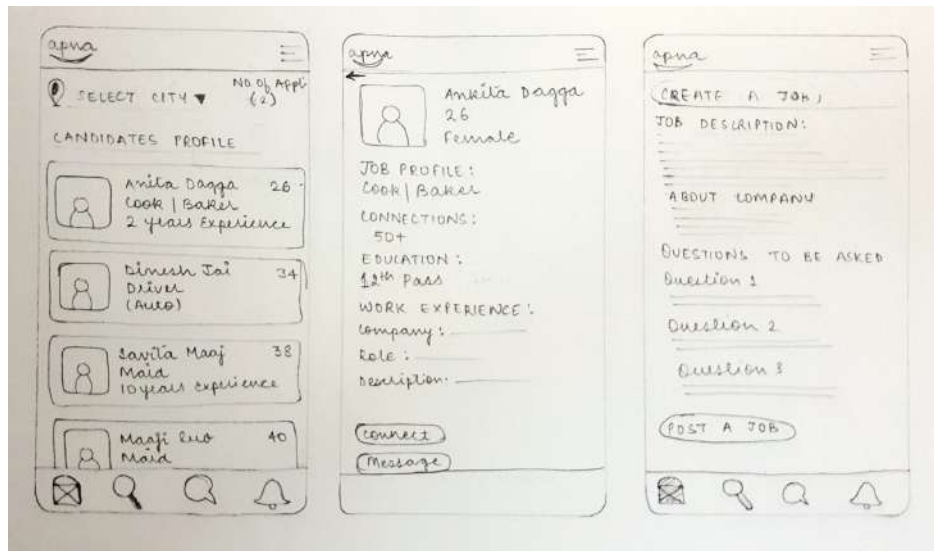 apna
SELECT CITY
No. of Appli
(2)
CANDIDATES PROFILE
Anita Dagga 26
Cook | Baker
2 years Experience
Dinesh Jai 34
Driver
(Auto)
Savita Maaj 38
Maid
10 years experience
Maaji 40
Maid
apna
Ankita Dagga
26
Female
JOB PROFILE:
Cook | Baker
CONNECTIONS:
50+
EDUCATION:
12th Pass
WORK EXPERIENCE:
Company:
Role:
Description:
Connect
Message
apna
CREATE A JOB
JOB DESCRIPTION:
ABOUT COMPANY
QUESTIONS TO BE ASKED
Question 1
Question 2
Question 3
POST A JOB